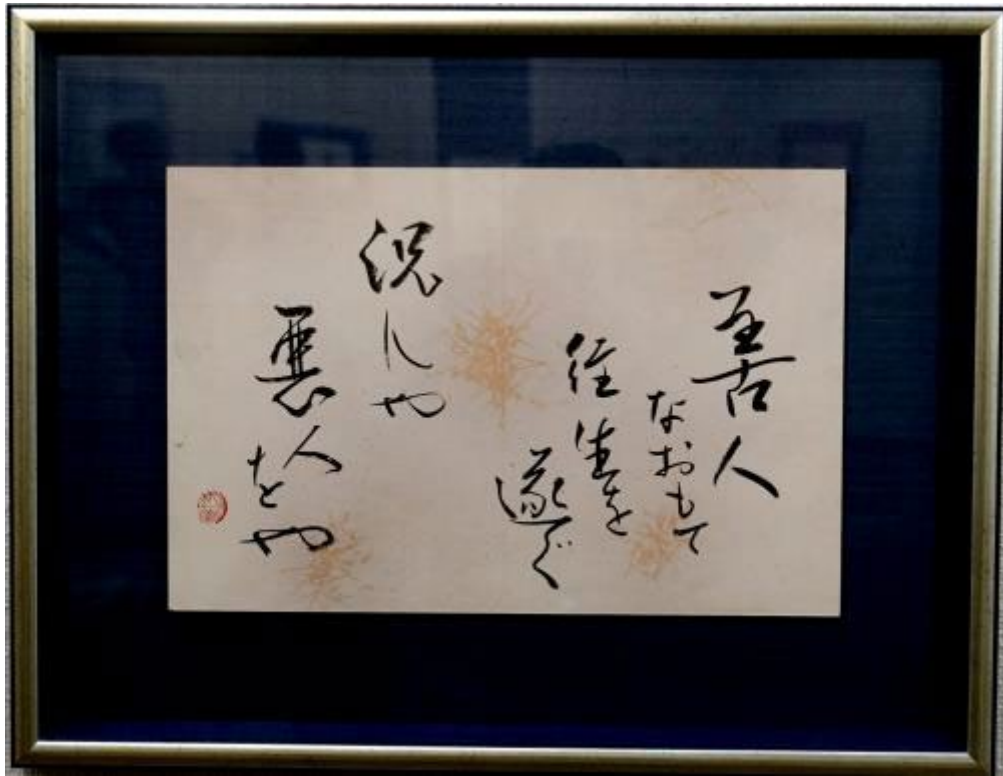 善人
なおもて
往生を
遂ぐ
況んや
悪人
をや